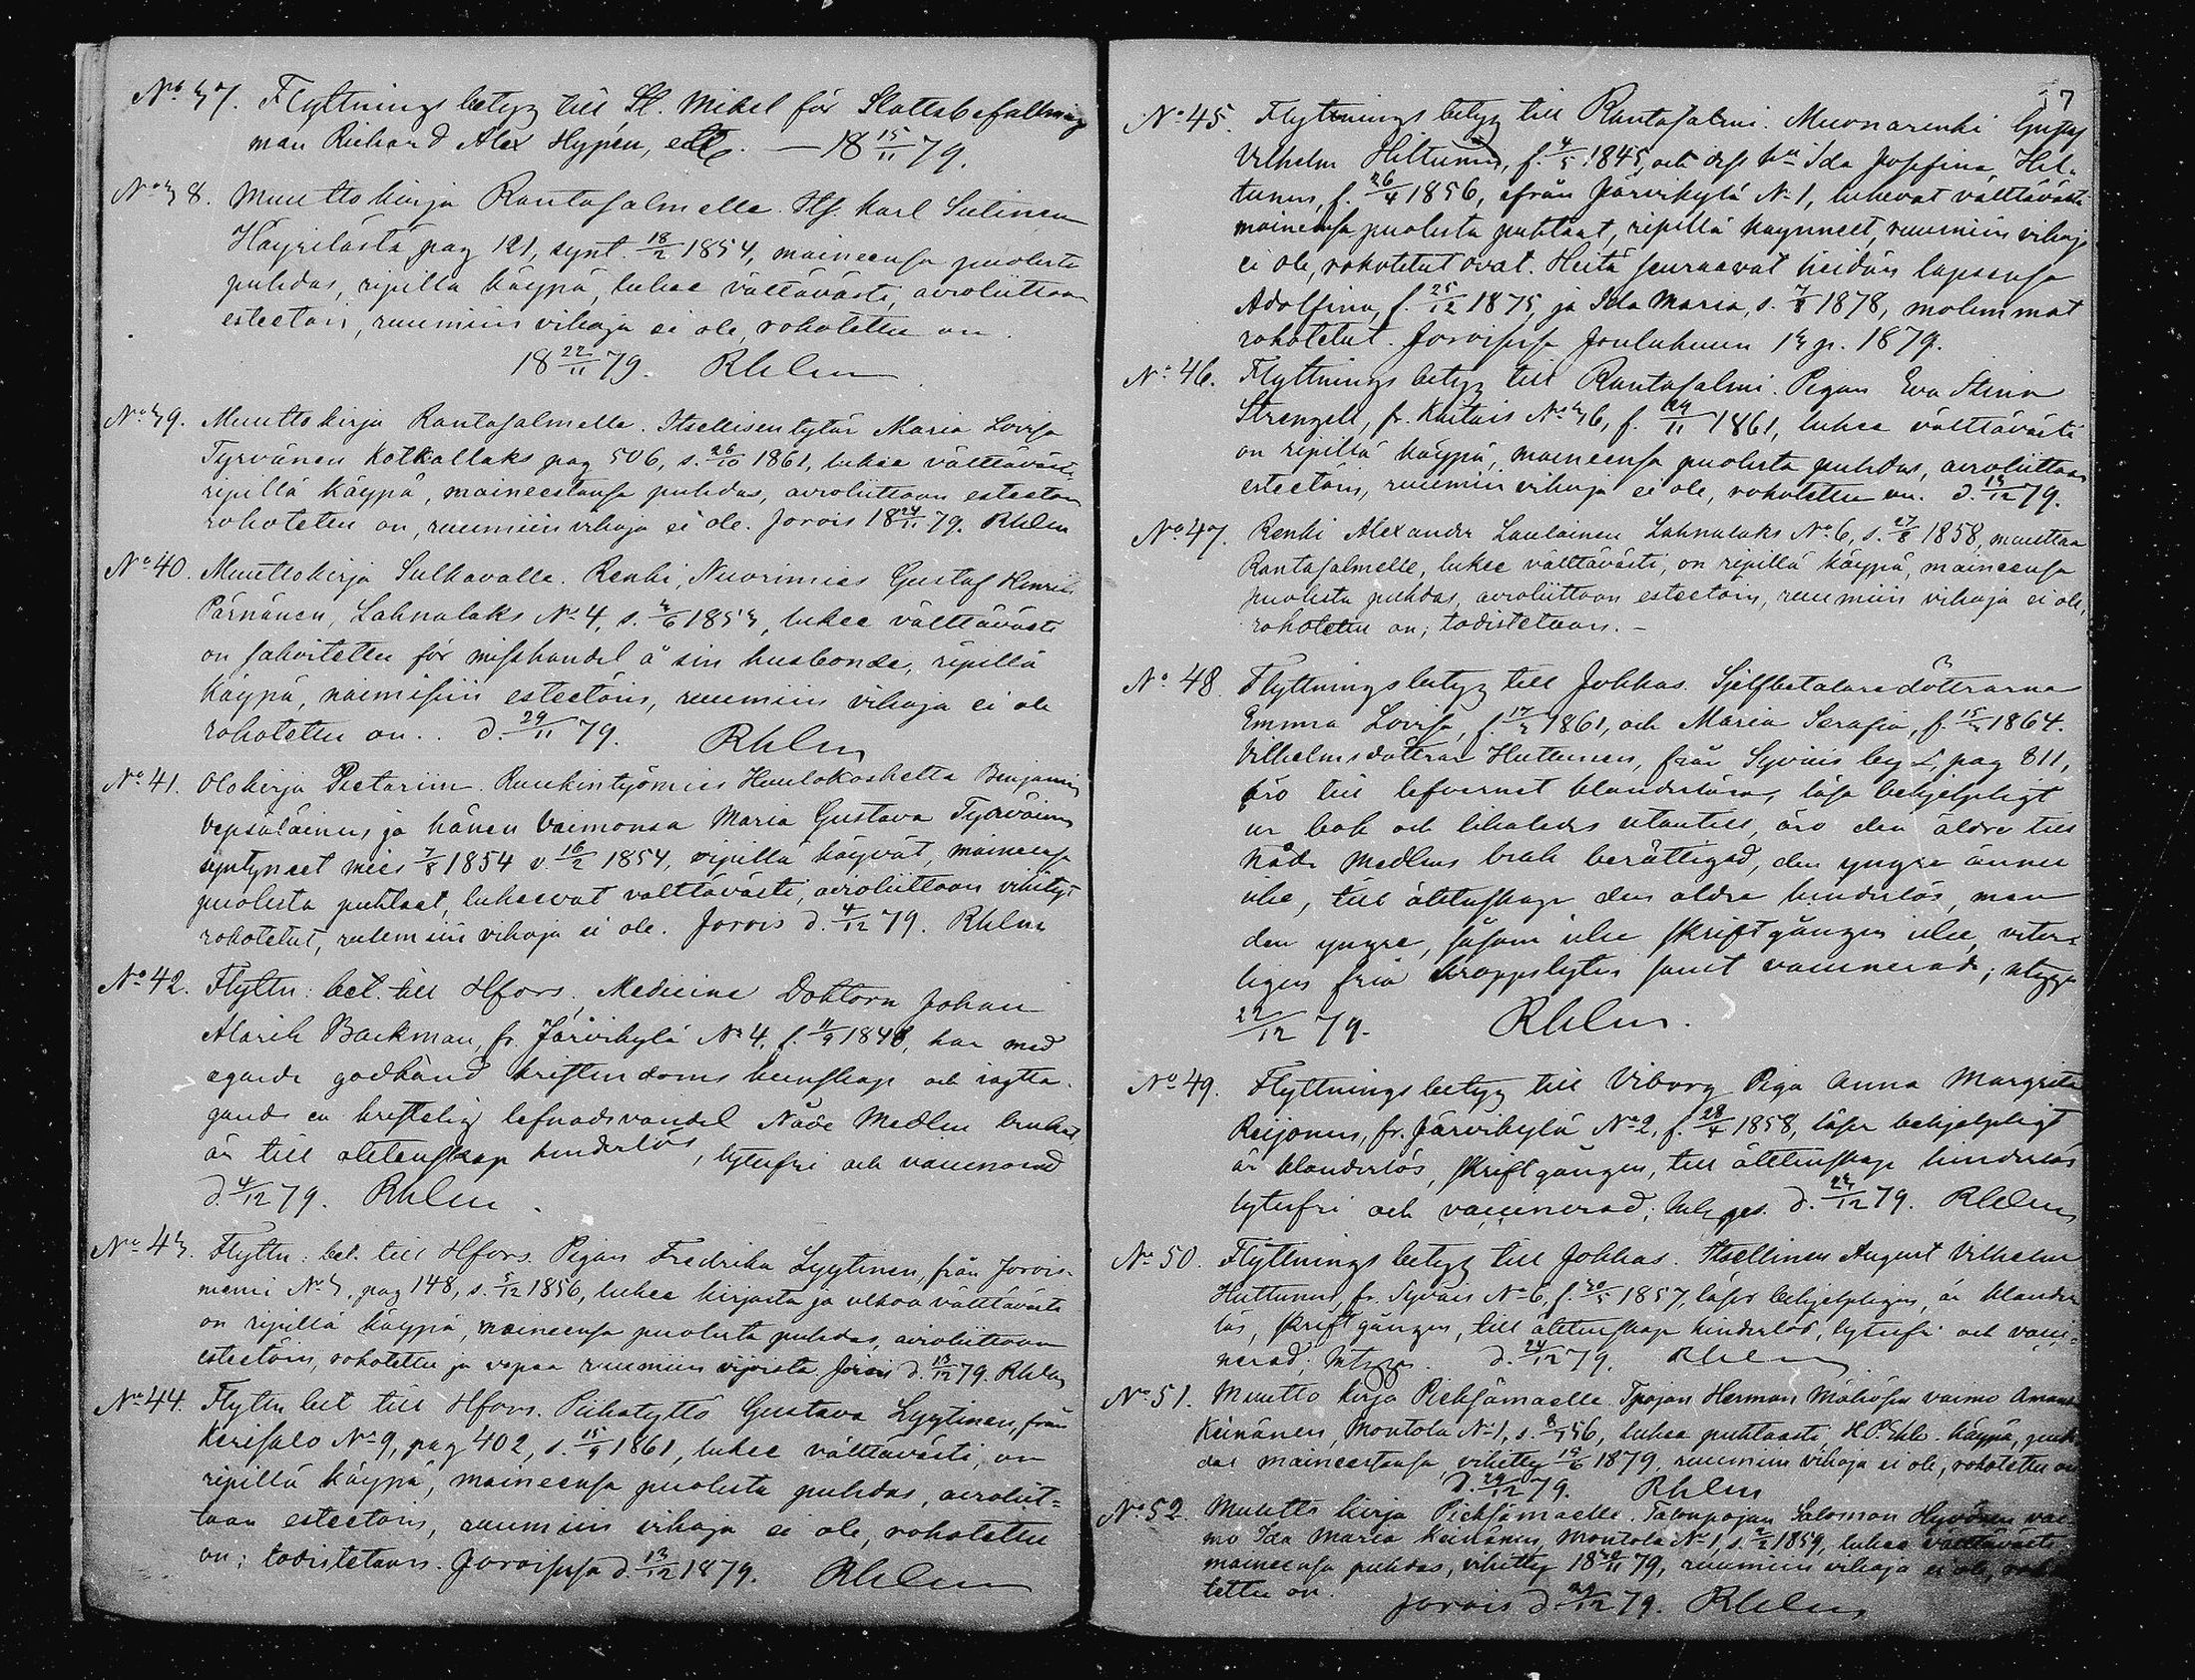 No 37. Flyttningsbetyg till St. Mikel för Slottsbefallnings
man Richard Alex Hypén, etc. — 18 15/11 79.
No 38. Muuttokirja Rantasalmelle. Hf. Karl Sutinen
Häyrilästä pag 121, synt. 18/2 1854, maineensa puolesta
puhdas, ripillä käypä, lukee välttävästi, avioliittoon
esteetöin, ruumiin vikoja ei ole, rokotettu on.
18 22/11 79. Rhlm
No 39. Muuttokirja Rantasalmelle. Itsellisentytär Maria Lovisa
Tyrvänen Kotkatlaks pag 506, s. 26/10 1861, lukee välttäväst:
ripillä käypä, maineestansa puhdas, avioliittoon esteetön
rokotettu on, ruumiin vikoja ei ole. Jorois 18 24/11 79. Rhlm
No 40. Muuttokirja Sulkavalle. Renki, Nuorimies Gustaf Henrik
Pärnänen, Lahnalaks No 4, s. 3/6 1853, lukee välttävästi
on sakoitettu för misshandel å sin husbonde, ripillä
käypä, naimisiin esteetöin, ruumiin vikoja ei ole
rokotettu on.. d. 29/11 79. Rhlm
No 41. Olokirja Pietariin. Ruukintyömies Huutokoskelta Benjamin
Vepsäläinen, ja hänen Vaimonsa Maria Gustava Tyrväinen
syntyneet mies 7/8 1854 v. 16/2 1854, ripillä käyvät, maineensa
puolesta puhtaat, lukeevat välttävästi, avioliittoon vihityt
rokotetut, ruumiin vikoja ei ole. Jorois d. 4/12 79. Rhlm
No 42. Flyttn: bet. till Hfors. Medicine Doktorn Johan
Alarik Backman, fr. Järvikylä No 4, f. 11/9 1848, har med
ägande godkänd kristendoms kunskap och iagtta-
gande en kristelig lefnadsvandel Nåde Medlen brukat,
är till äktenskap hinderlös, lytesfri och vaccinerad
d. 4/12 79. Rhlm.
No 43. Flyttn: bet. till Hfors. Pigan Fredrika Lyytinen, från Jorois-
niemi No 3, pag 148, s. 5/12 1856, lukee kirjasta ja ulkoa välttävästi
on ripillä käypä, maineensa puolesta puhdas, avioliittoon
esteetöin, rokotettu ja vapaa ruumiin vijoista Jorois d. 13/12 79. Rhlm
No 44. Flyttn bet till Hfors. Piikatyttö Gustava Lyytinen, från
Kerisalo No 9, pag 402, s. 15/9 1861, lukee välttävästi, on
ripillä käypä, maineensa puolesta puhdas, avioliit=
toon esteetöin, ruumiin vikoja ei ole, rokotettu
on; todistetaan. Joroisissa d. 13/12 1879. Rhlm
57
No 45. Flyttningsbetyg till Rantasalmi. Muonarenki Gustaf
Vilhelm Hiltunen, f. 4/5 1845, och dess hu Ida Josefina Hil-
tunen, f. 26/4 1856, ifrån Järvikylä No 1, lukevat välttävästi
maineensa puolesta puhtaat, ripillä käyneet, ruumiin vikoja
ei ole, rokotetut ovat. Heitä seuraavat heidän lapsensa
Adolfina, f. 25/12 1875, ja Ida Maria, s. 7/8 1878, molemmat
rokotetut. Joroisissa Joulukuun 13 p. 1879.
No 46. Flyttningsbetyg till Rantasalmi. Pigan Eva Stina
Strengell, fr. Kaitais No 36, f. 24/11 1861, lukee välttävästi
on ripillä käypä, maineensa puolesta puhdas, avioliittoon
esteetöin, ruumiin vikoja ei ole, rokotettu on. d. 13/12 79.
No 47. Renki Alexander Laulainen Lahnalaks No 6, s. 27/2 1858, muuttaa
Rantasalmelle, lukee välttävästi, on ripillä käypä, maineensa
puolesta puhdas, avioliittoon esteetöin, ruumiin vikoja ei ole,
rokotettu on; todistetaan. —
No 48. Flyttningsbetyg till Jokkas. Sjelfbetalaredöttrarna
Emma Lovisa, f. 17/3 1861, och Maria Serafia, f. 15/3 1864.
Vilhelmsdöttrar Huttunen, från Syväis pag 811,
äro till lefvernet klanderlösa, läsa behjelpligt
ur bok och likaledes utantill, äro den äldre till
Nåde Medlens bruk berättigad, den yngre ännu
icke, till äktenskap den äldre hinderlös, men
den yngre, såsom icke skriftgången icke, veter-
ligen fria kroppslyten samt vaccinerade; utgges
22/12 79. Rhlm.
No 49. Flyttningsbetyg till Viborg Piga Anna Margreta
Reijonen, fr. Järvikylä No 2, f. 28/4 1858, läser behjelpligt,
är klanderlös, skriftgången, till äktenskap hinderlös
lytesfri och vaccinerad; d. 23/12 79. Rhlm
No 50. Flyttningsbetyg till Jokkas. Itsellinen August Vilhelm
Huttunen, fr. Syväis No 6, f. 30/5 1857, läser behjelpligen, är klander
lös, skriftgången, till äktenskap hinderlös, lytesfri och vacci-
nerad; d. 24/12 79. Rhlm
No 51. Muutto kirja Pieksämaelle. Tpojan Herman vaimo Amanda
Keinänen, Montola No 1, s. 56, lukee puhtaasti, H.P.Ehto. käypä, puh
das maineestansa, vihitty 19/6 1879, ruumiin vikoja ei ole, rokotettu on
d. 29/12 79. Rhlm
No 52. Muutto kirja Pieksämaelle. Talonpojan Salomon Hyvönen vai
mo Ida Maria Keinänen, Montola No 1, s. 2/2 1859, lukee välttävästi
maineensa puhdas, vihitty 18 30/11 79, ruumiin vikoja ei ole, roko
tettu on. Jorois d. 29/12 79. Rhlm